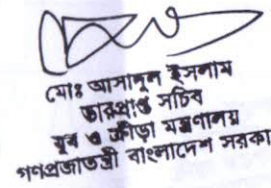 মোঃ আসাদুল ইসলাম
ভারপ্রাপ্ত সচিব
যুব ও ক্রীড়া মন্ত্রণালয়
গণপ্রজাতন্ত্রী বাংলাদেশ সরকা